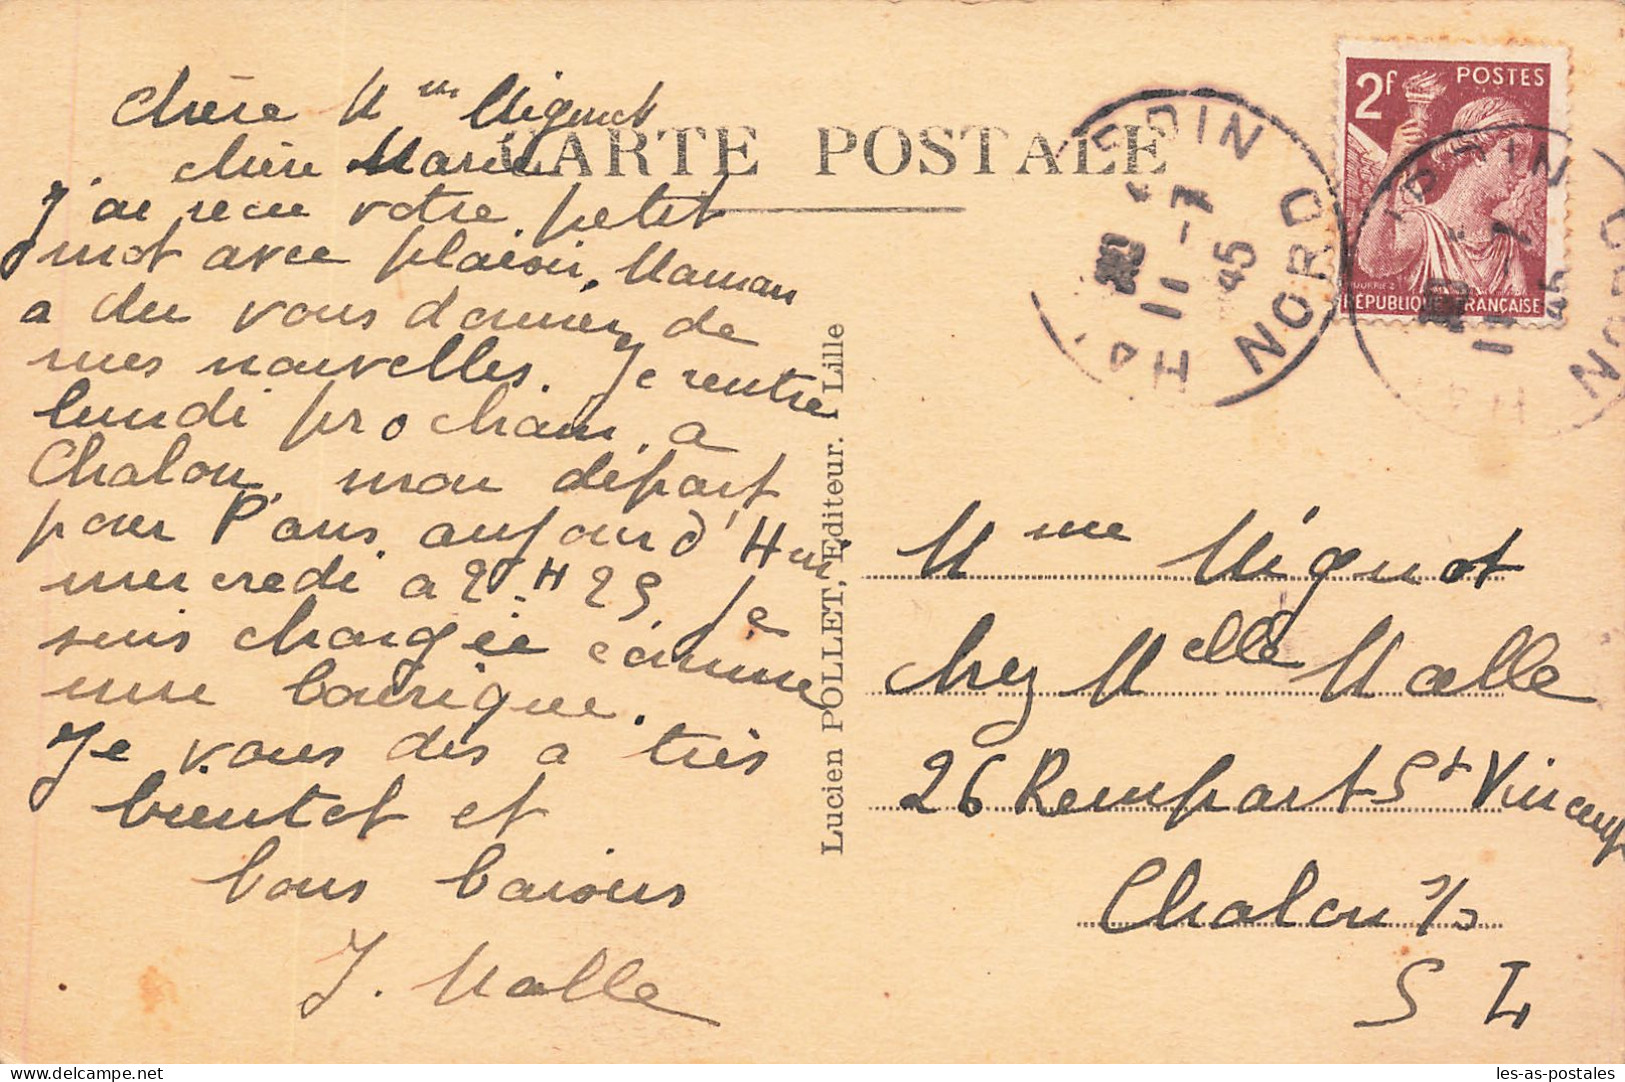 CARTE POSTALE
Chère Mme Mignot
chère Marie
J'ai recu votre petit
mot avec plaisir, Maman
a du vous donner de
mes nouvelles. Je rentre
lundi prochain a
Chalon, mon départ
pour Paris aujourd'Hui
mercredi a 2 H 25 Je
suis chargée comme
une bourique.
Je vous dis a très
bientot et
bons baisers
J. Malle
Lucien POLLET, Editeur. Lille
NORD
11-7
45
2f POSTES
RÉPUBLIQUE FRANÇAISE
NORD
Mme Mignot
chez Melle Malle
26 Rempart St Vincent
Chalon s/s
S L
les-as-postales